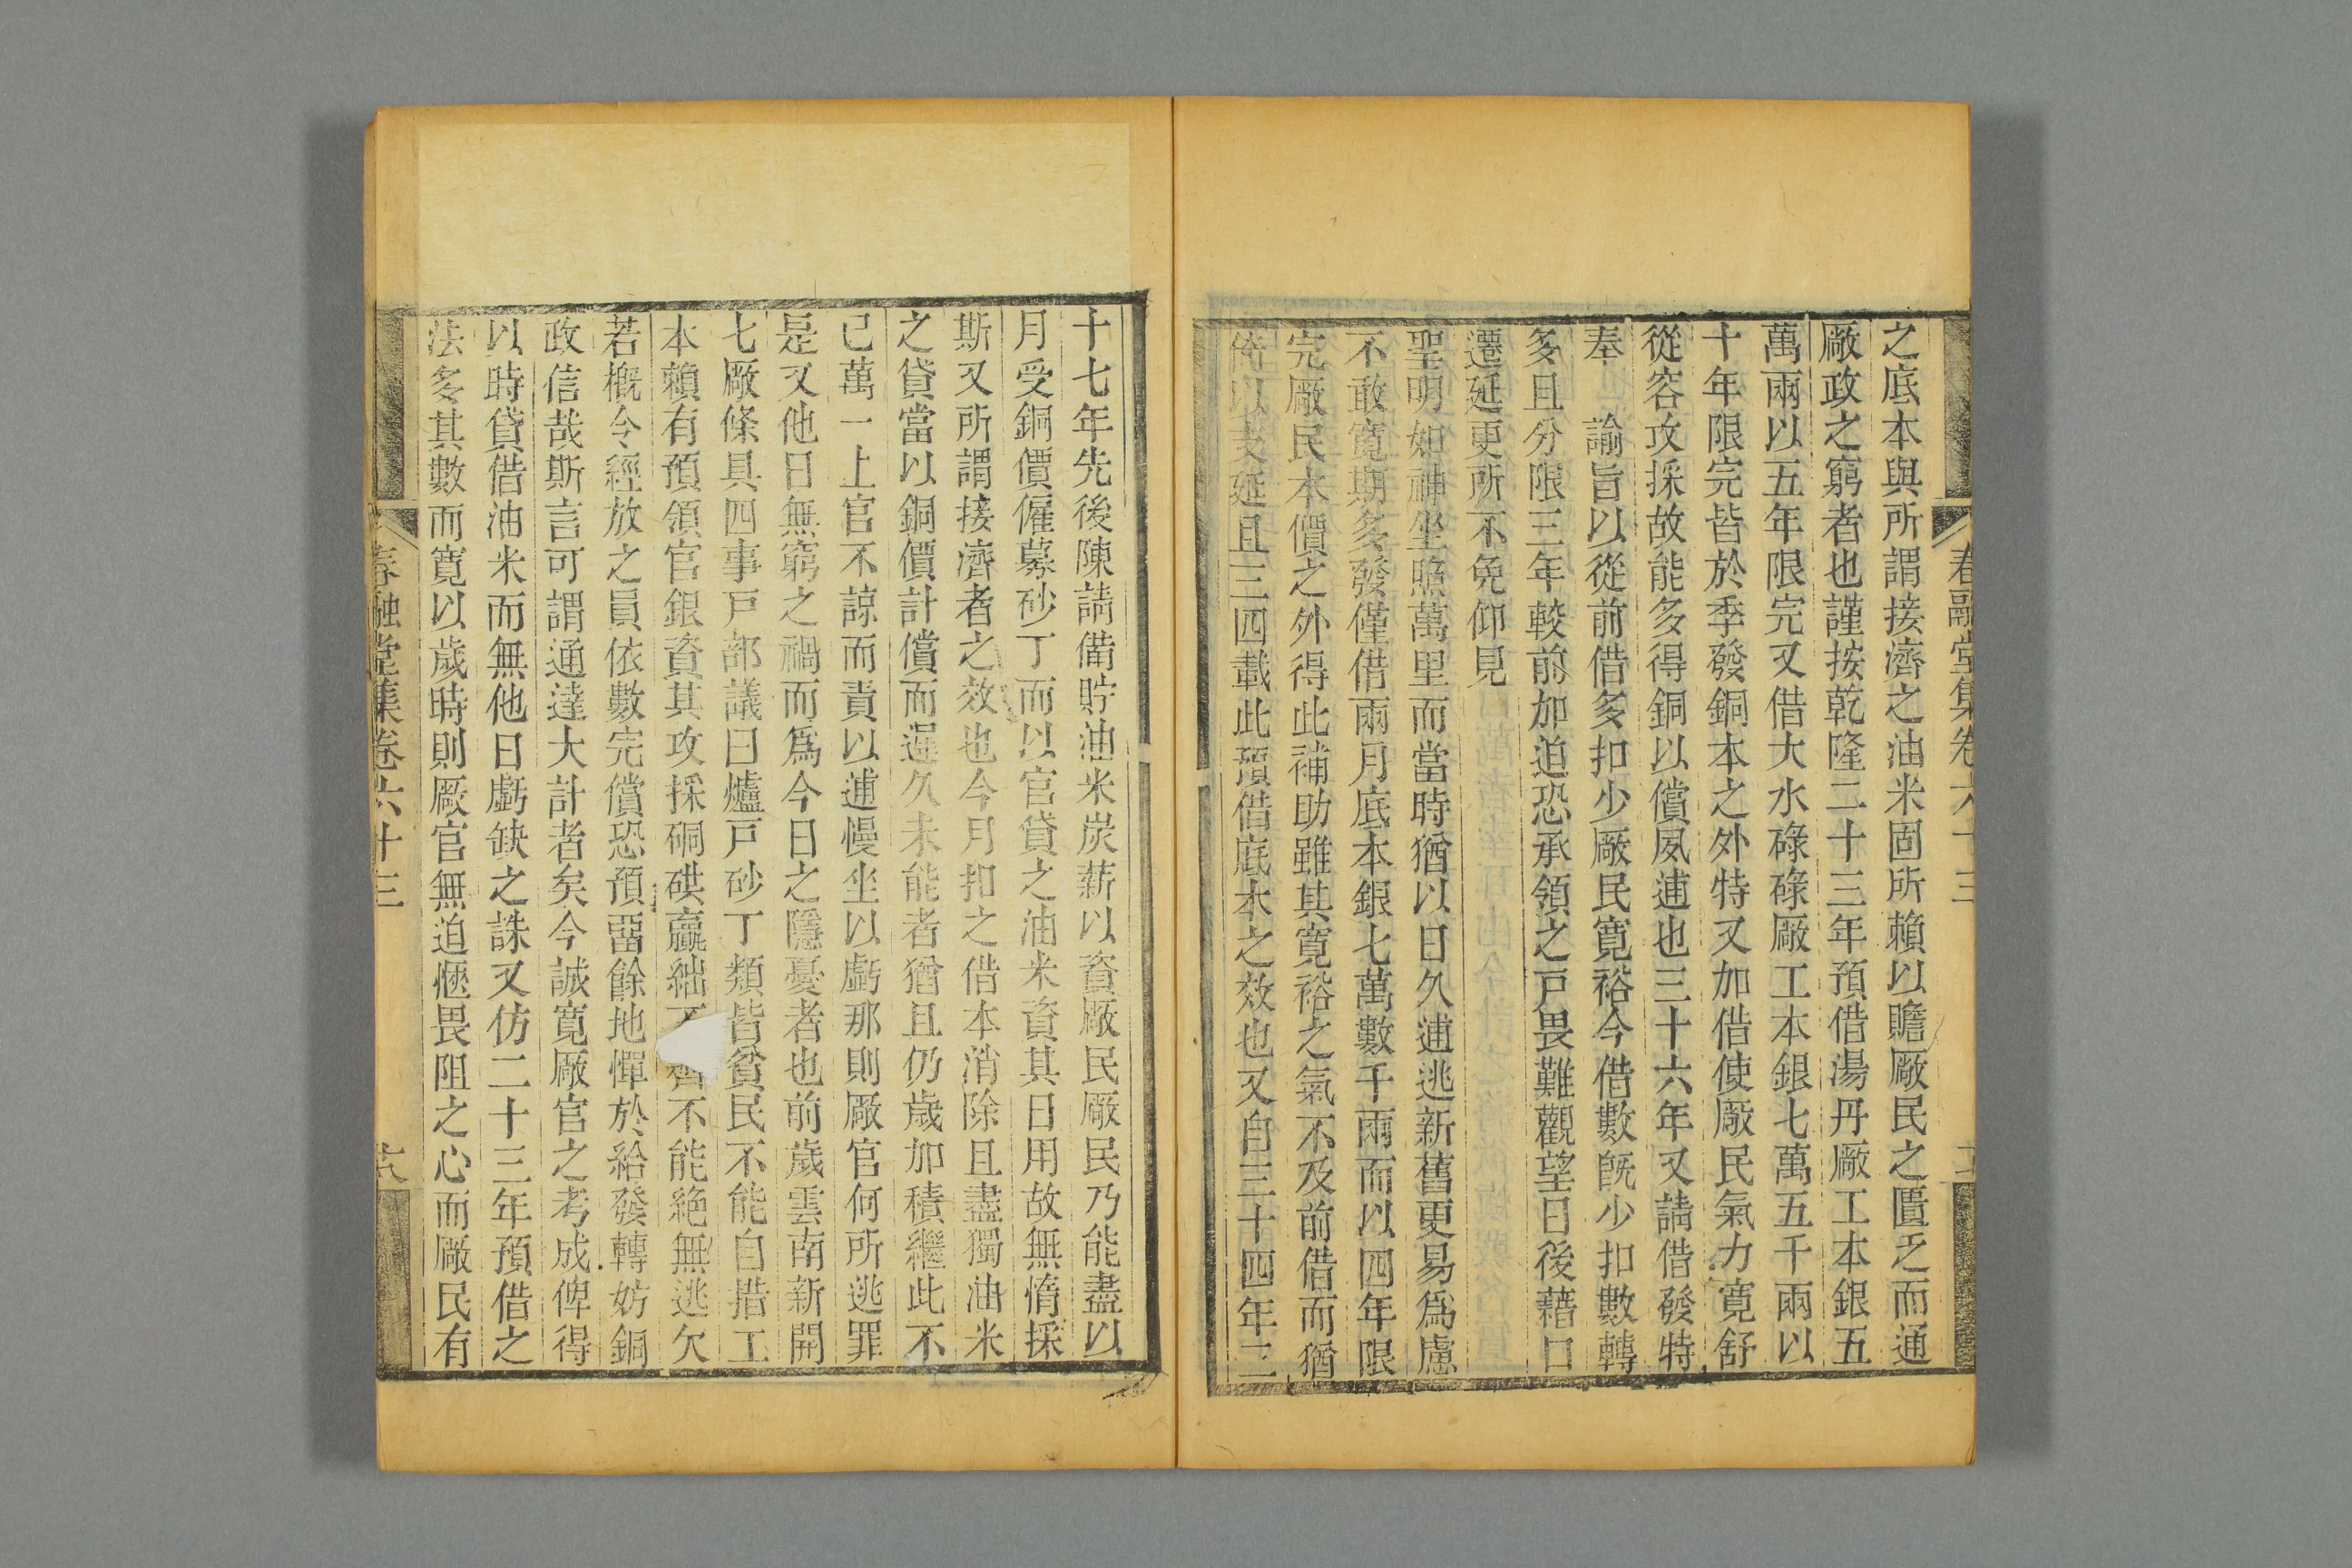 春融堂集卷六十三
之底本與所謂接濟之油米固所賴以贍廠民之匱乏而通
廠政之窮者也謹按乾隆二十三年預借湯丹廠工本銀五
萬兩以五年限完又借大水碌碌廠工本銀七萬五千兩以
十年限完皆於季發銅本之外特又加借使廠民氣力寬舒
從容攻採故能多得銅以償夙逋也三十六年又請借發特
奉 諭旨以從前借多扣少廠民寬裕今借數旣少扣數轉
多且分限三年較前加迫恐承領之戸畏難觀望日後藉口
遷延更所不免仰見
聖明如神坐照萬里而當時猶以日久逋逃新舊更易爲慮
不敢寬期多發僅借兩月底本銀七萬數千兩而以四年限
完廠民本價之外得此補助雖其寬裕之氣不及前借而猶
倚以支延且三四載此預借底本之效也又自三十四年三
十七年先後陳請備貯油米炭薪以資廠民廠民乃能盡以
月受銅價僱募砂丁而以官貸之油米資其日用故無惰採
斯又所謂接濟者之效也今月扣之借本消除且盡獨油米
之貸當以銅價計償而遲久未能者猶且仍歲加積繼此不
已萬一上官不諒而責以逋慢坐以虧那則廠官何所逃罪
是又他日無窮之禍而爲今日之隱憂者也前歲雲南新開
七廠條具四事戸部議曰爐戸砂丁類皆貧民不能自措工
本賴有預領官銀資其攻採硐硔贏絀不齊不能絕無逃欠
若概令經放之員依數完償恐預畱餘地憚於給發轉妨銅
政信哉斯言可謂通達大計者矣今誠寬廠官之考成俾得
以時貸借油米而無他日虧缺之誅又仿二十三年預借之
法多其數而寬以歲時則廠官無迫愜畏阻之心而廠民有
春融堂集卷六十三